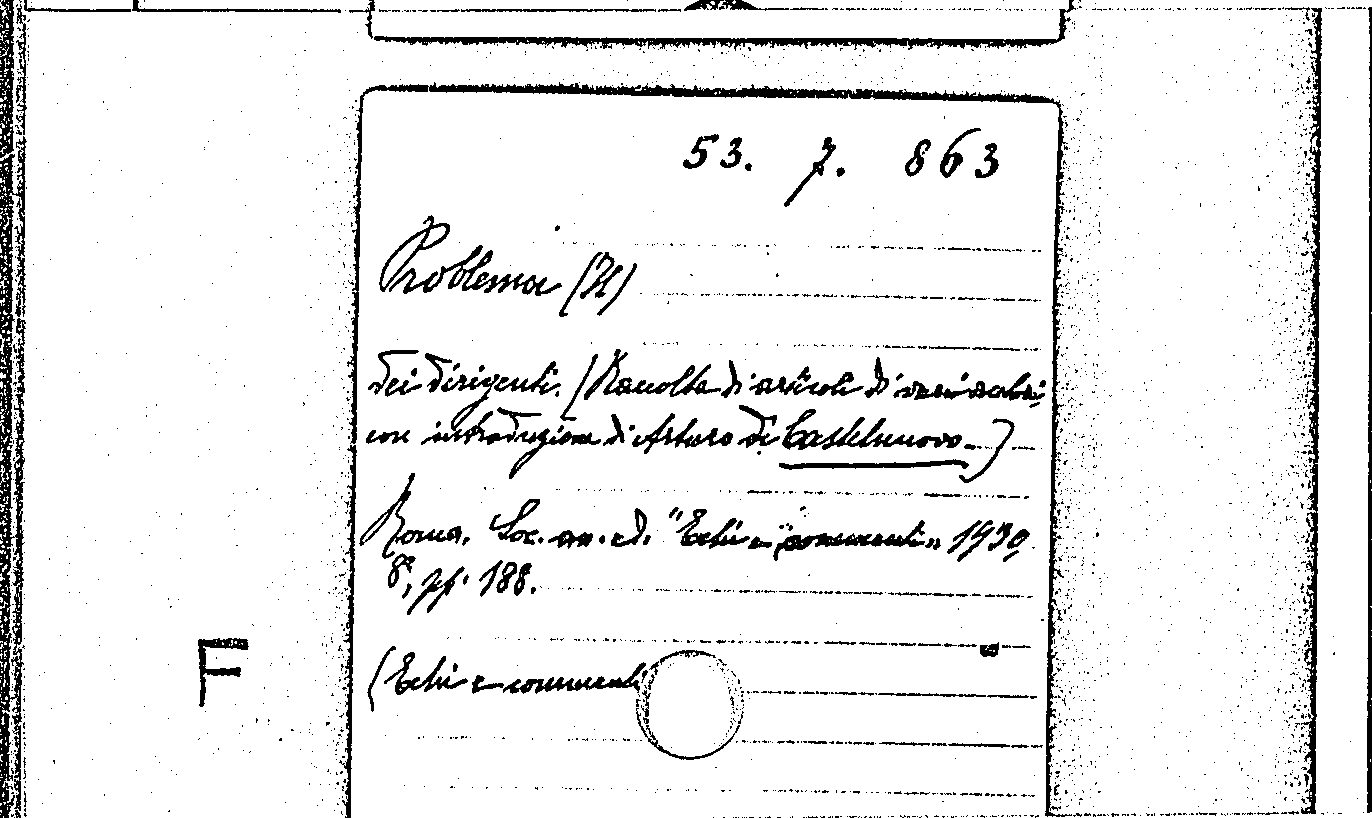 53. 7. 863
Problema (Il)
dei dirigenti. (Raccolta di articoli di vari autori
con introduzione di Arturo di Castelnuovo.)
Roma, Soc. an. ed. "Echi e commenti" 1930
8°, pp. 188.
F
(Echi e commenti